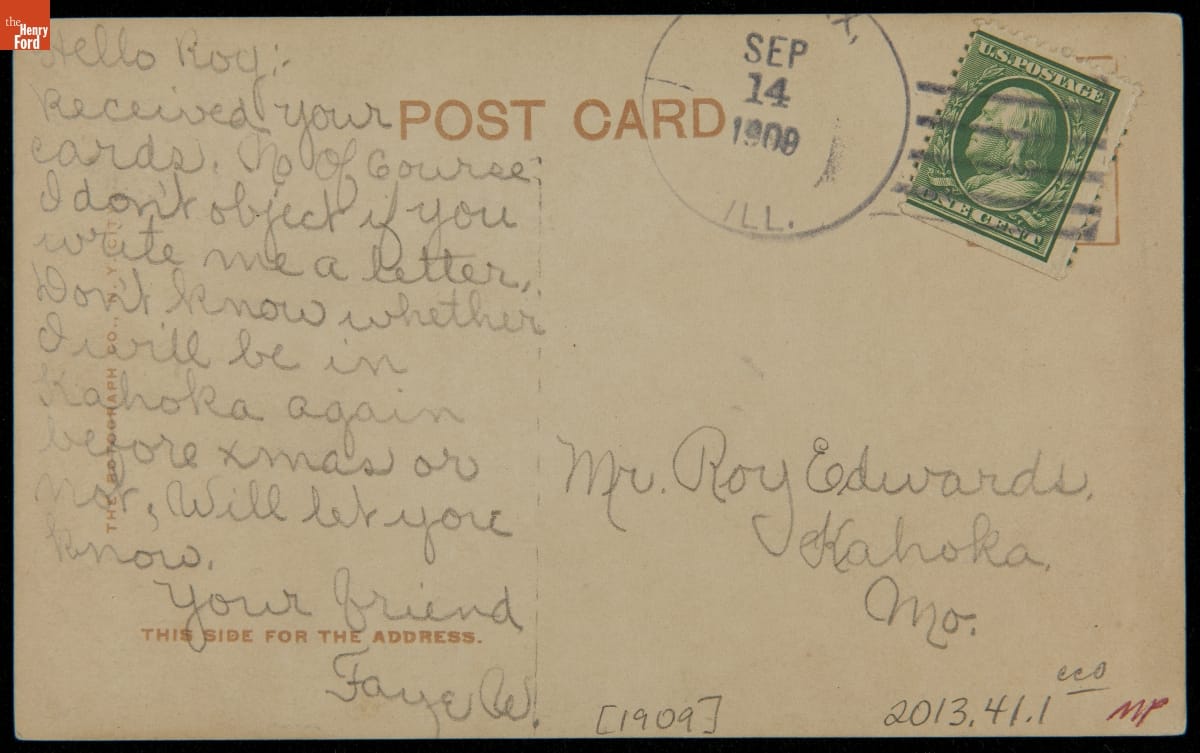 the
Henry
Ford
Hello Roy:-
Received your
cards. No Of Course
I don't object if you
write me a letter.
Don't know whether
I will be in
Kahoka again
before xmas or
not, Will let you
know.
Your friend
Faye W.
POST CARD
THIS SIDE FOR THE ADDRESS.
THE ROTOGRAPH CO., N.Y. CITY
SEP
14
1909
ILL.
U.S. POSTAGE
ONE CENT
Mr. Roy Edwards,
Kahoka,
Mo.
[1909]
2013.41.1
eco
MP